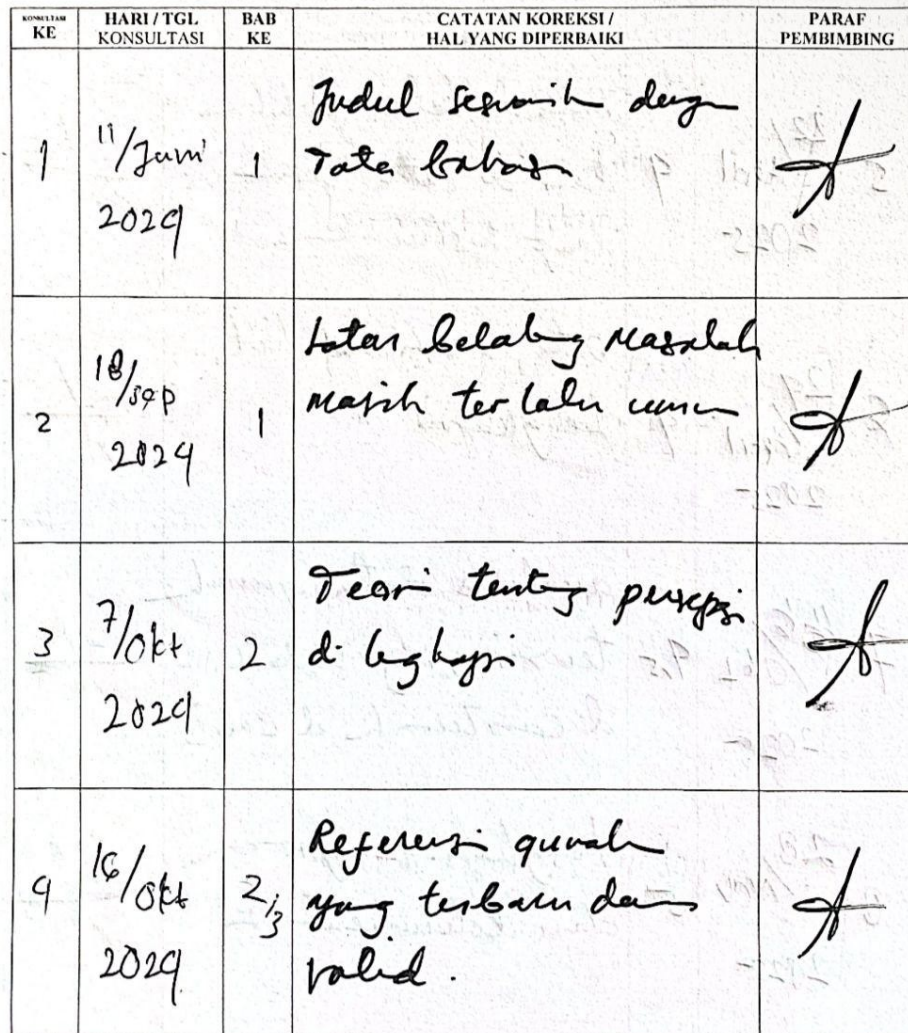 KONSULTASI KE
HARI / TGL KONSULTASI
BAB KE
CATATAN KOREKSI / HAL YANG DIPERBAIKI
PARAF PEMBIMBING
1
11/Juni
2024
1
Judul sesuaik dengn
Tata bahasa
2
18/sep
2024
1
Latar belakang Masalah
masih terlalu umum
3
7/Okt
2024
2
Teori tentang persepsi
di lengkapi
4
16/Okt
2024
2,3
Referensi gunakan
yang terbaru dan
valid.